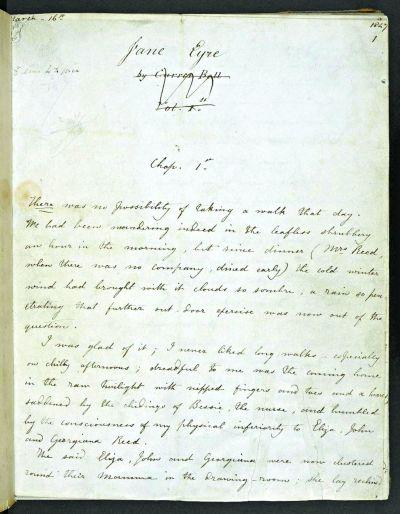 March - 16th
1847
1
Jane Eyre
by Currer Bell
Vol. 1st
Chap. 1st
There was no possibility of taking a walk that day.
We had been wandering indeed in the leafless shrubbery
an hour in the morning, but since dinner (Mrs Reed,
when there was no company, dined early) the cold winter
wind had brought with it clouds so sombre, a rain so pene
trating that further out-door exercise was now out of the
question.
I was glad of it; I never liked long walks - especially
on chilly afternoons; dreadful to me was the coming home
in the raw twilight with nipped fingers and toes and a heart
saddened by the chidings of Bessie, the nurse, and humbled
by the consciousness of my physical inferiority to Eliza, John
and Georgiana Reed.
The said Eliza, John and Georgiana were now clustered
round their Mamma in the drawing-room; she lay reclined